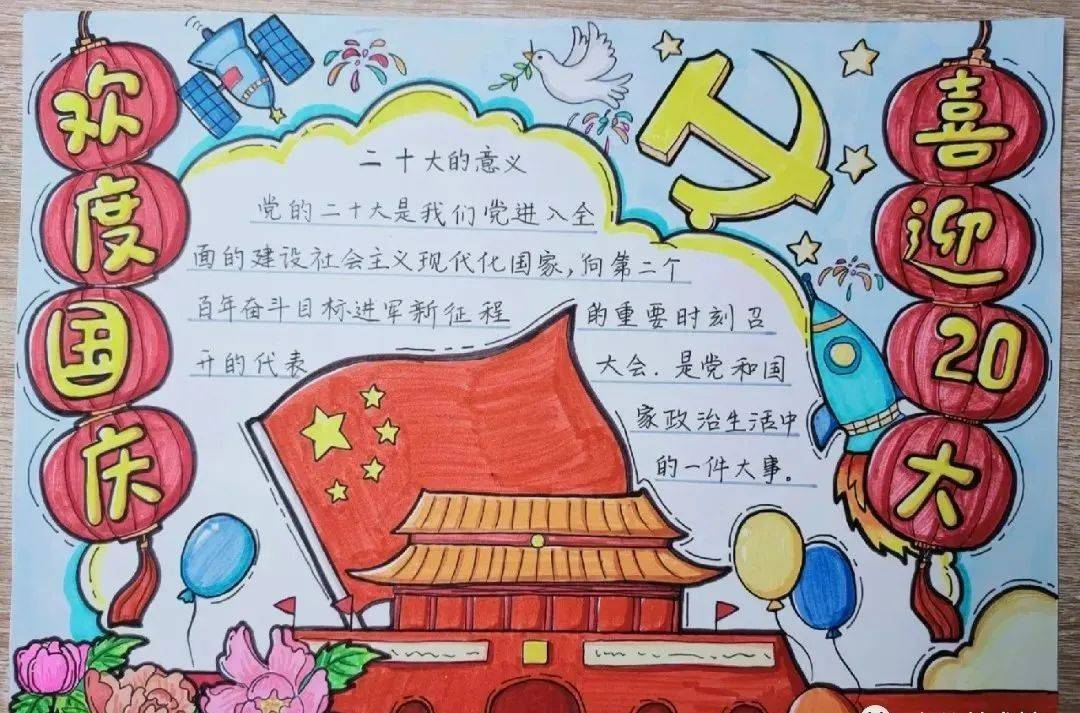 欢度国庆
二十大的意义
党的二十大是我们党进入全
面的建设社会主义现代化国家,向第二个
百年奋斗目标进军新征程 的重要时刻召
开的代表 大会.是党和国
家政治生活中
的一件大事。
喜迎20大